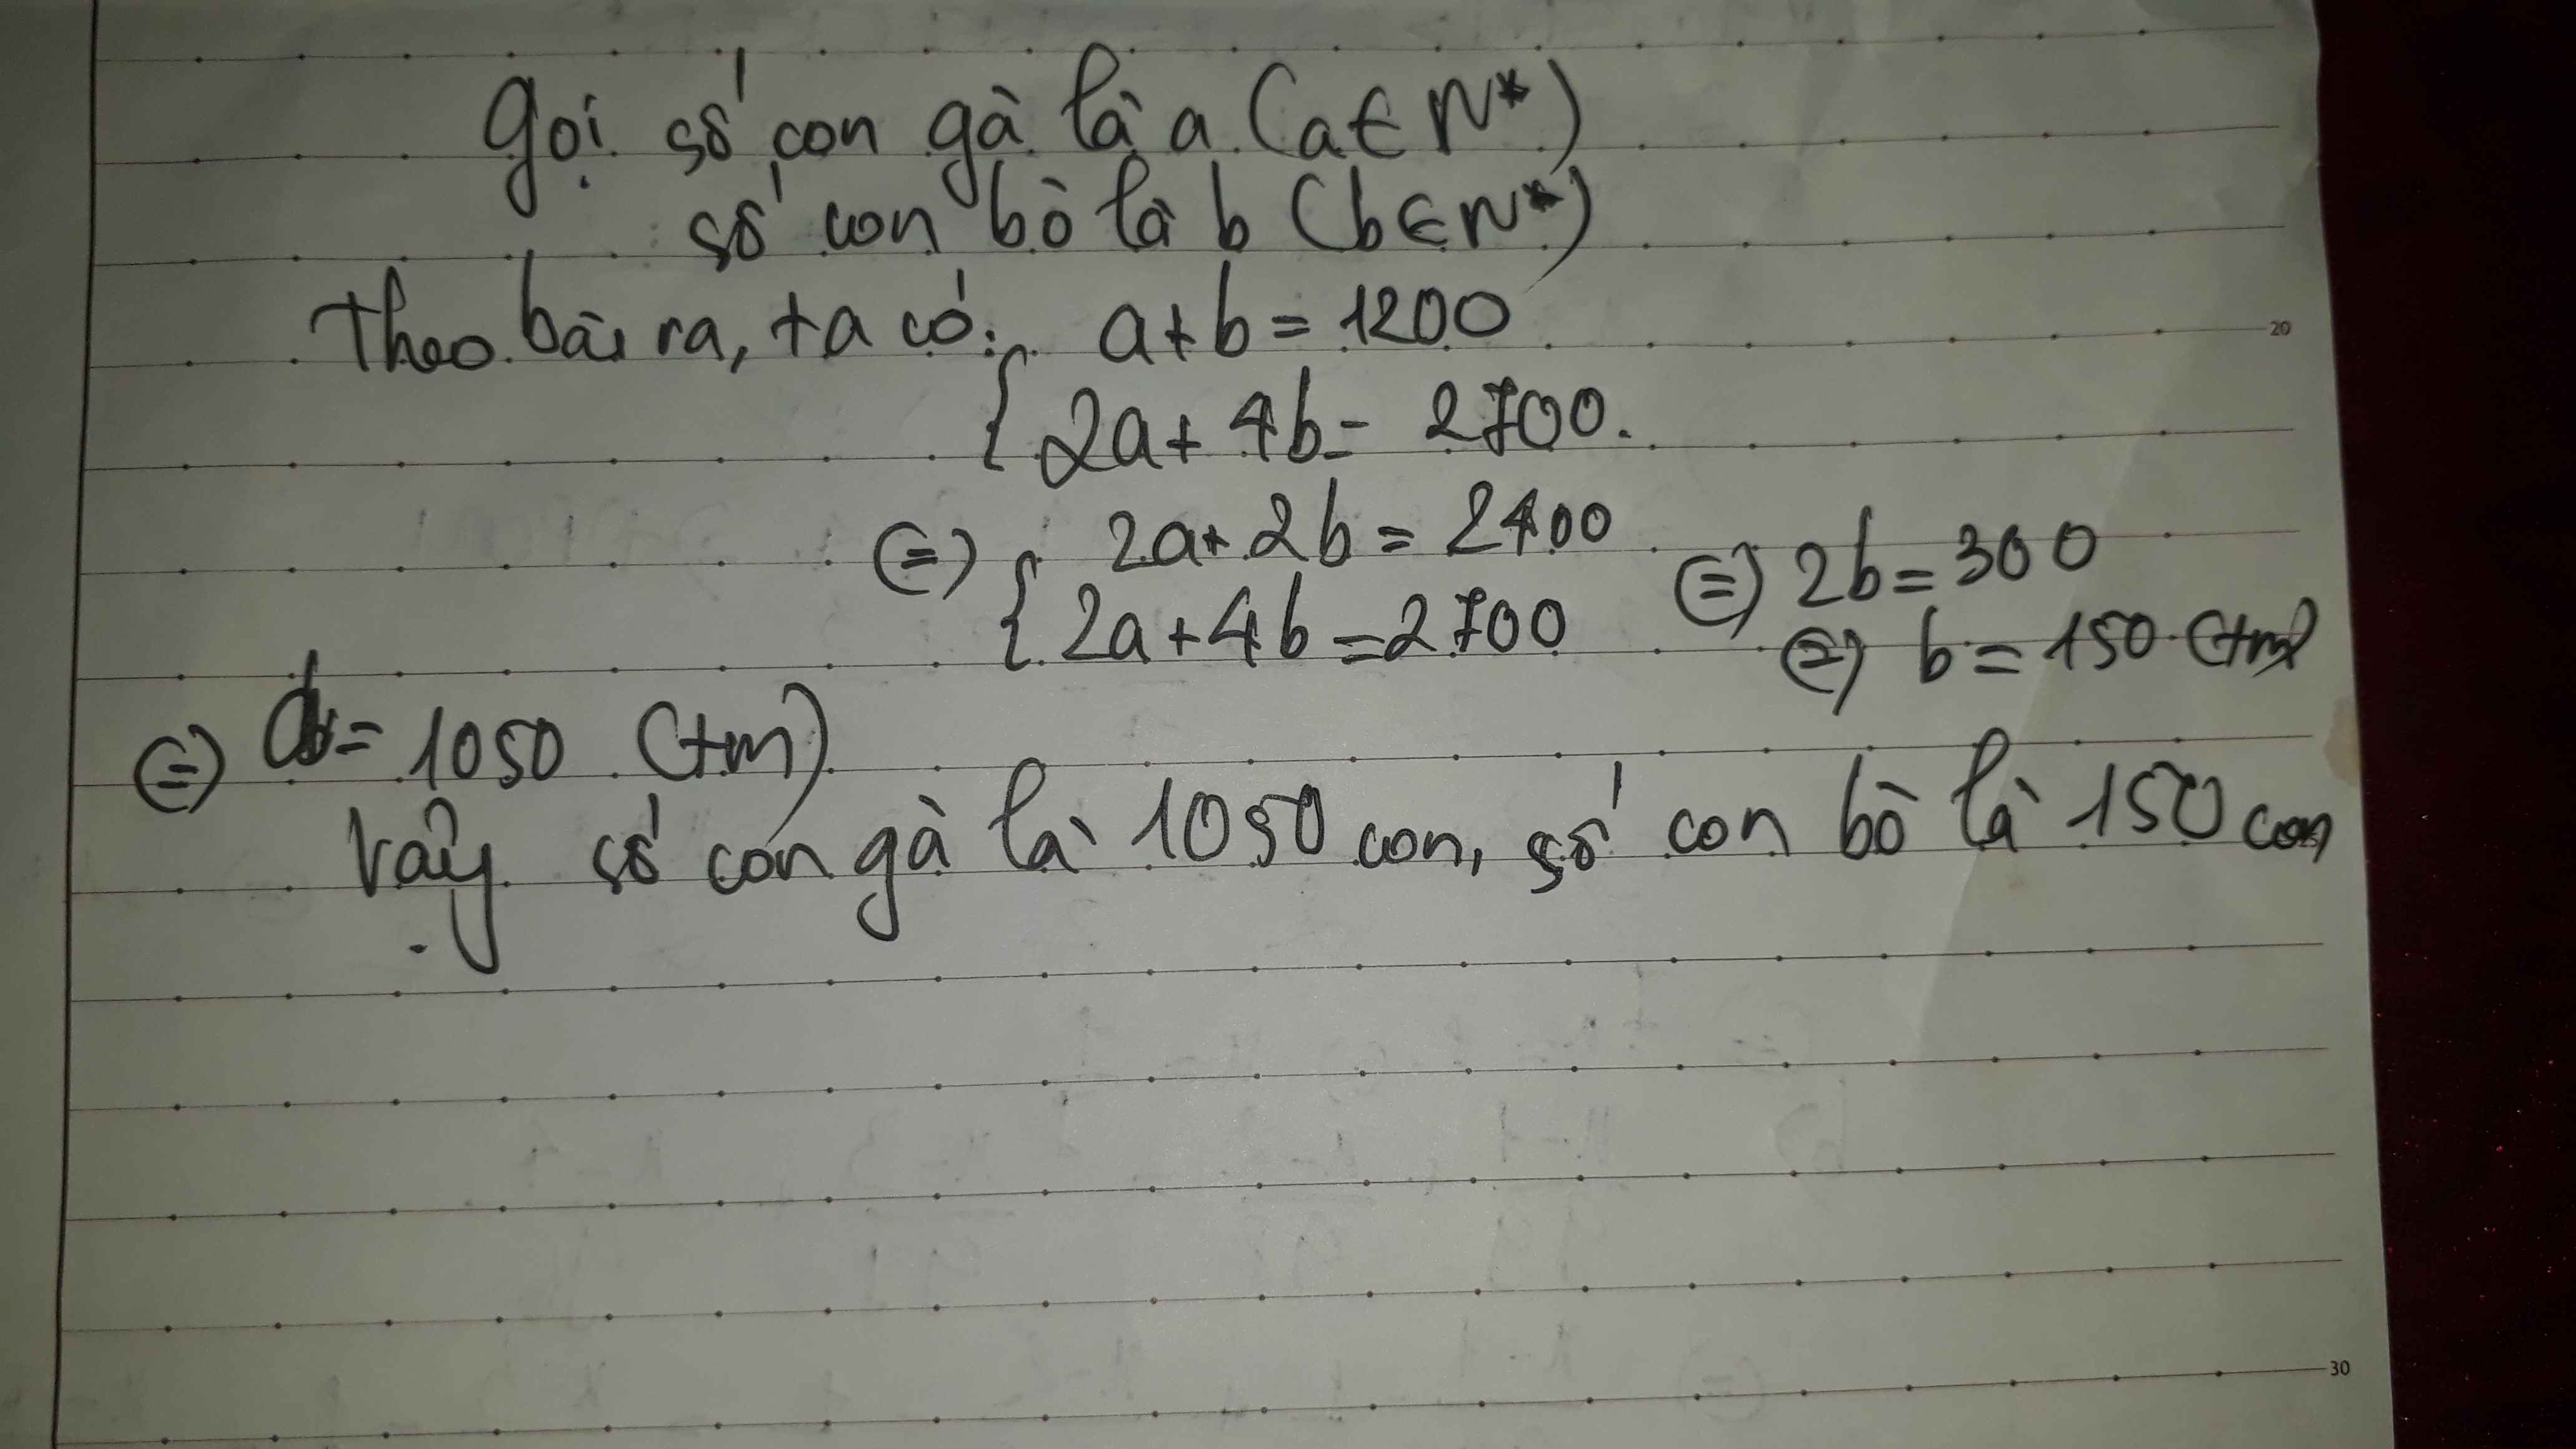 Gọi số con gà là a (a ∈ N*)
số con bò là b (b ∈ N*)
Theo bài ra, ta có: a+b = 1200
{ 2a + 4b = 2700.
20
(=) 2a + 2b = 2400
{ 2a + 4b = 2700
(=) 2b = 300
(=) b = 150 (tm)
(=) a = 1050 (tm)
Vậy số con gà là 1050 con, số con bò là 150 con
30